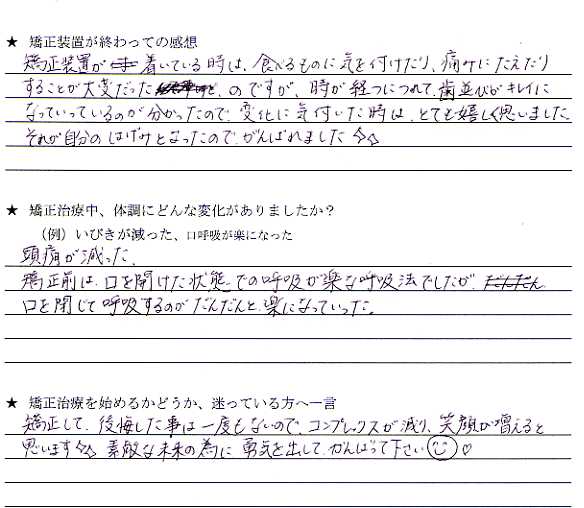 ★ 矯正装置が終わっての感想
矯正装置が着いている時は、食べるものに気を付けたり、痛みにたえたり
することが大変だった のですが、時が経つにつれて、歯並びがキレイに
なっていっているのが分かったので、変化に気付いた時は、とても嬉しく思いました。
それが自分のはげみとなったので、がんばれました☆☆
★ 矯正治療中、体調にどんな変化がありましたか？
（例）いびきが減った、口呼吸が楽になった
頭痛が減った。
矯正前は、口を開けた状態での呼吸が楽な呼吸法でしたが、
口を閉じて呼吸するのがだんだんと楽になっていった。
★ 矯正治療を始めるかどうか、迷っている方へ一言
矯正して、後悔した事は一度もないので、コンプレックスが減り、笑顔が増えると
思います☆☆ 素敵な未来の為に勇気を出して、がんばって下さい ♡